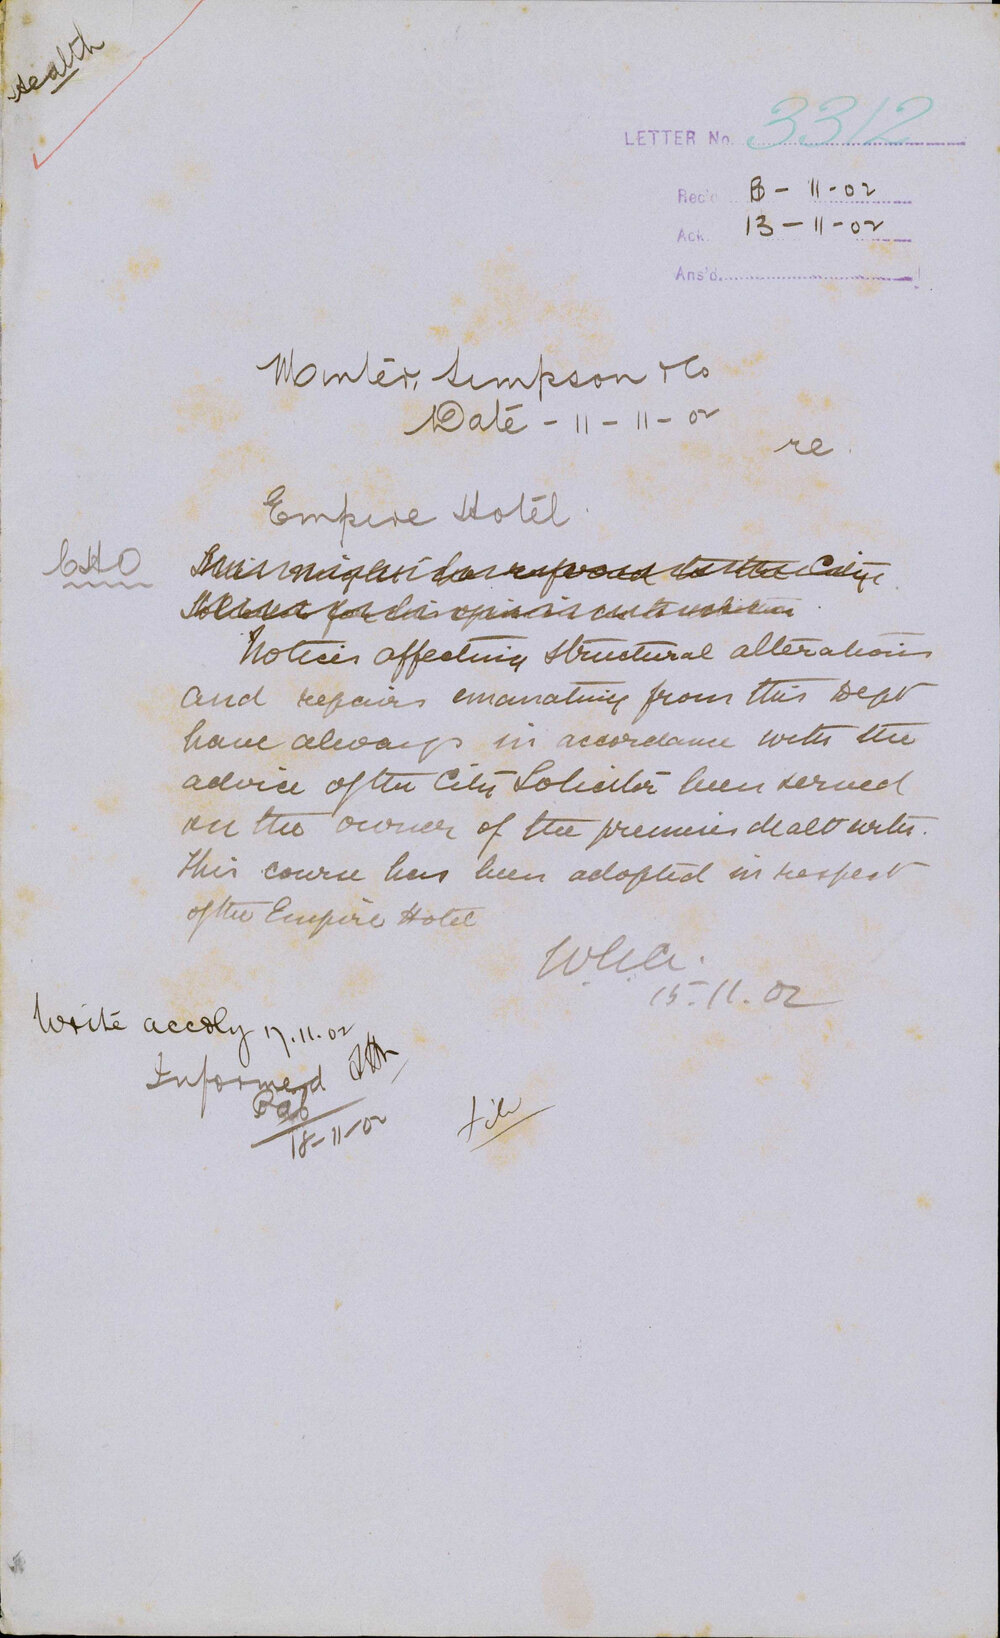 Health
LETTER No. 3312
Rec'd 13-11-02
Ack. 13-11-02
Ans'd
Minter, Simpson & Co
Date - 11-11-02
re
Empire Hotel.
CHO
This might be referred to the City
Solicitor for his opinion
Notices affecting structural alterations
and repairs emanating from this Dept
have always in accordance with the
advice of the City Solicitor been served
on the owner of the premises dealt with.
This course has been adopted in respect
of the Empire Hotel
15.11.02
Write accdly 17.11.02
Informed
18-11-02
file